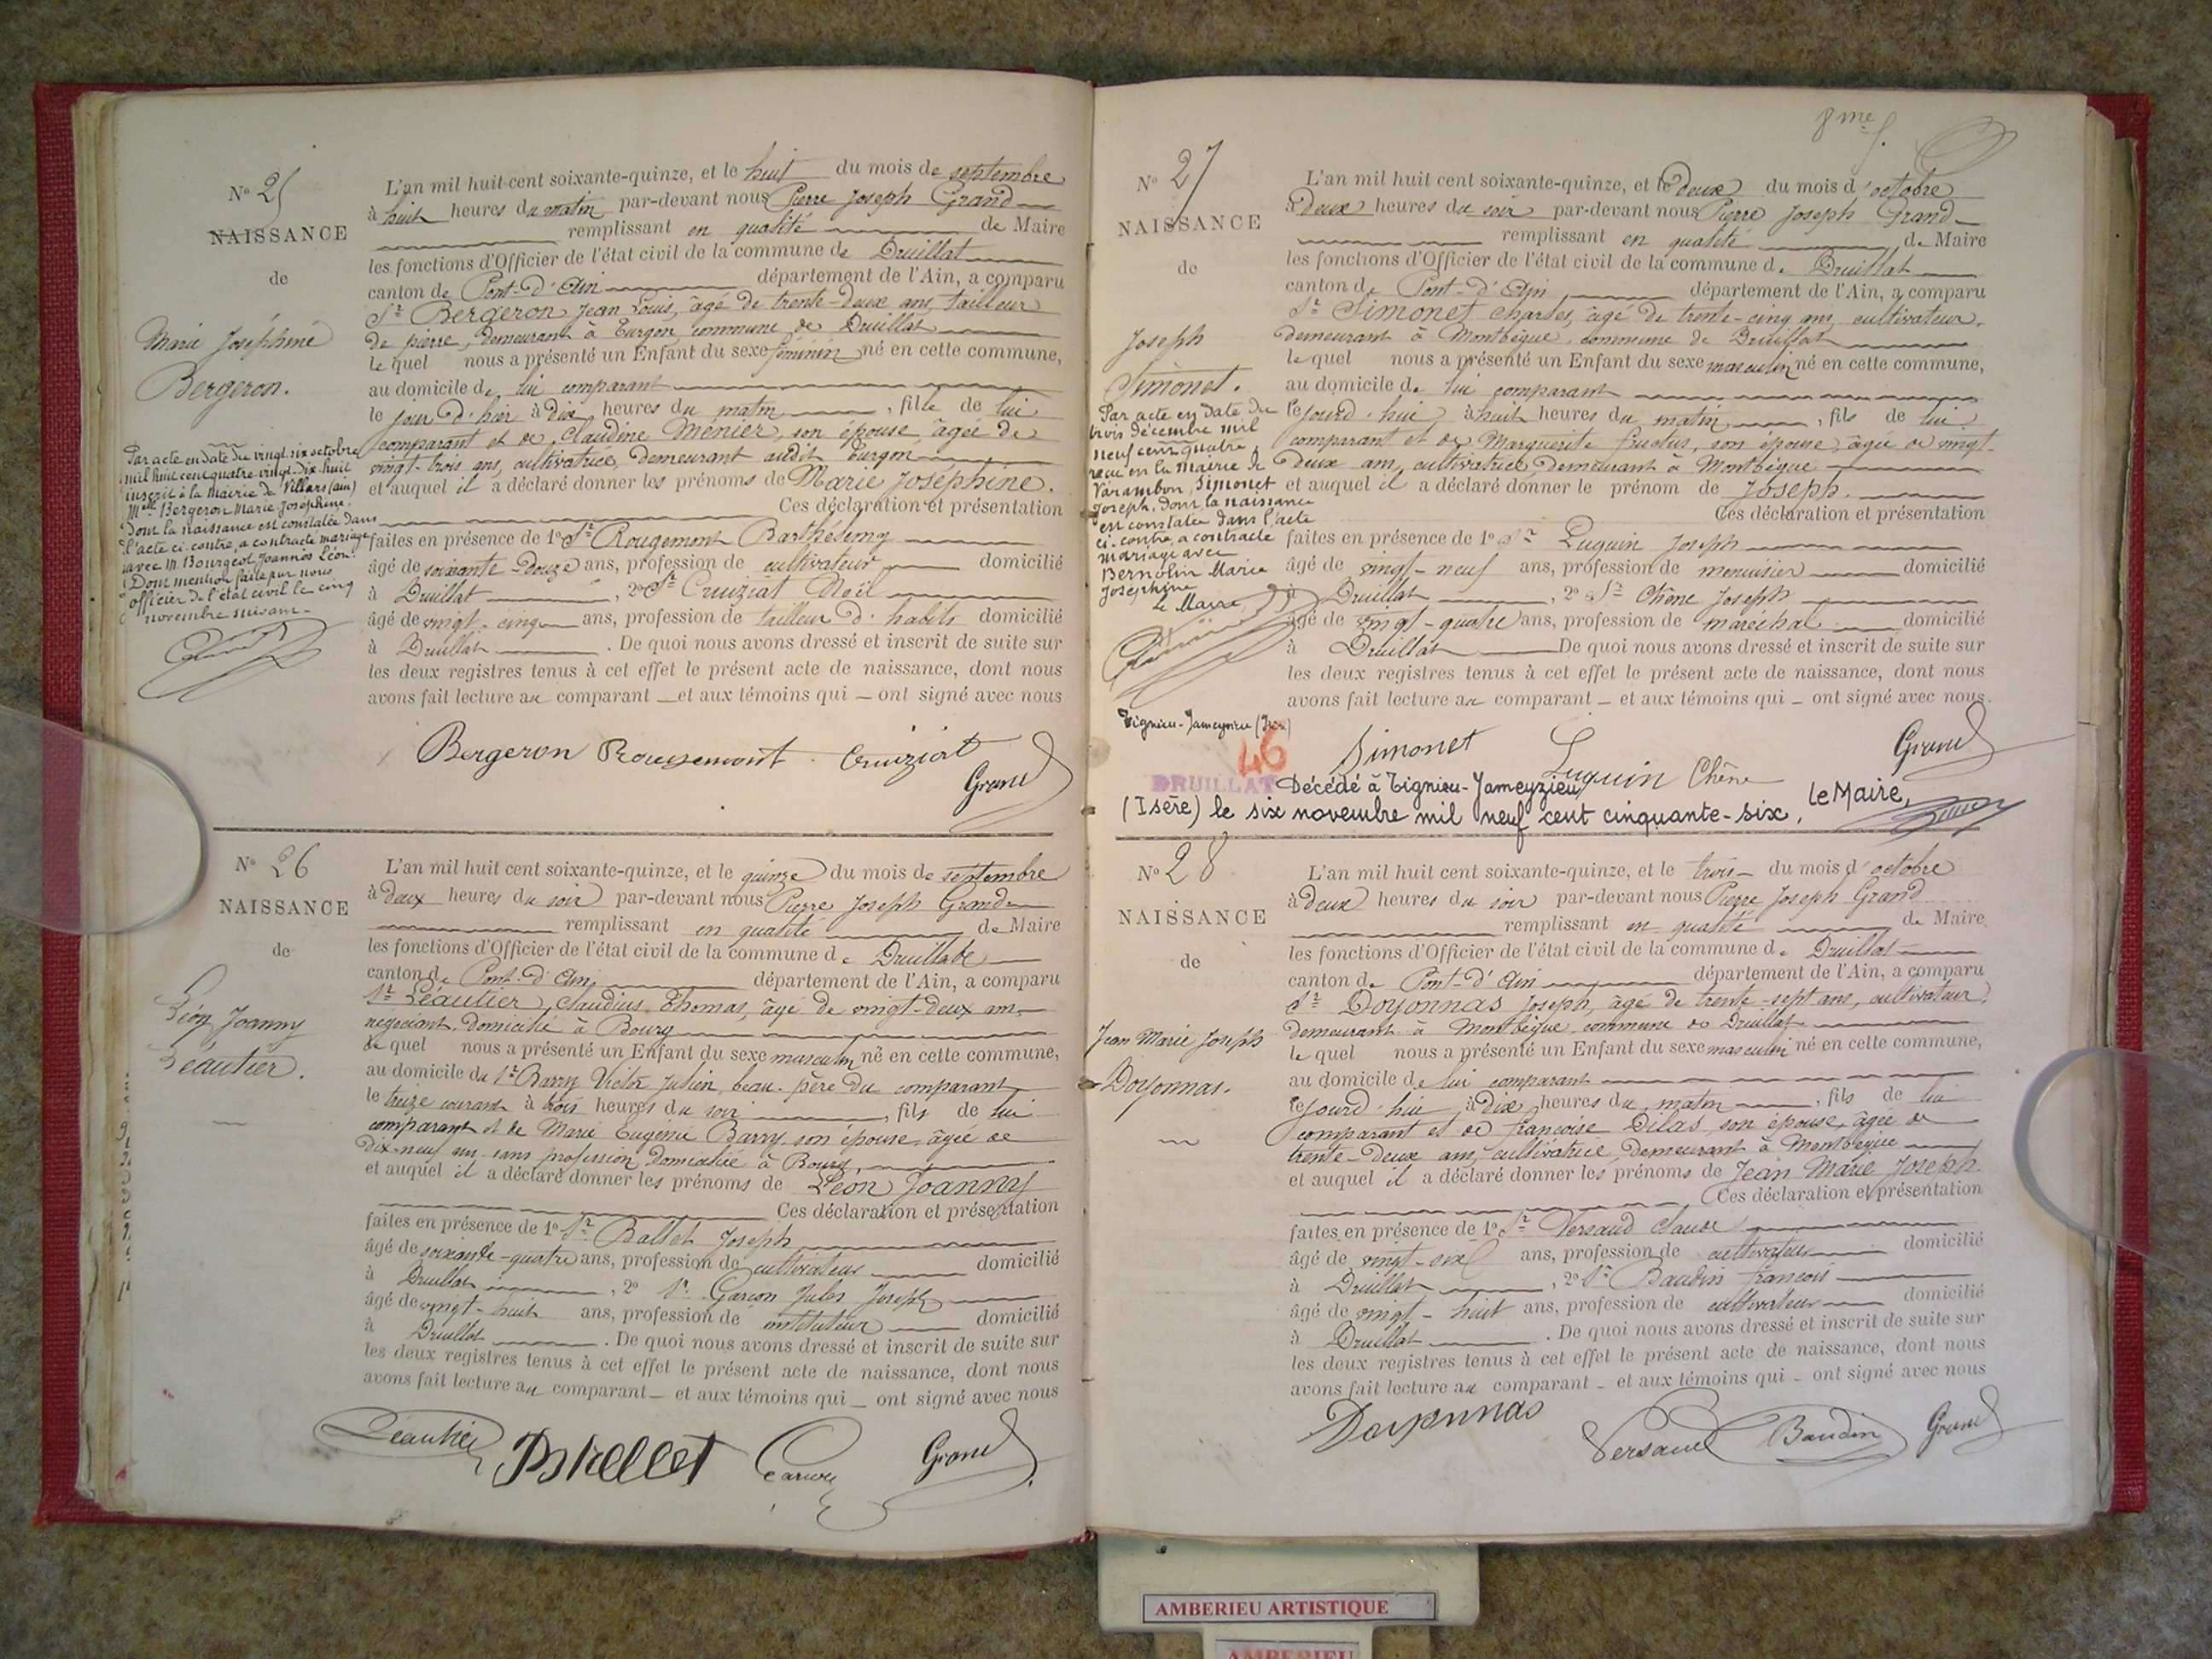 N° 25
NAISSANCE
de
Marie Joséphine
Bergeron.
Par acte en date du vingt six octobre
mil huit cent quatre vingt dix huit
inscrit à la Mairie de Villars (Ain)
Melle Bergeron Marie Joséphine.
dont la naissance est constatée dans
l'acte ci-contre, a contracté mariage
avec M. Bourgeot Joannès Léon.
Dont mention faite par nous
officier de l'état civil le cinq
novembre suivant.
L'an mil huit cent soixante-quinze, et le huit du mois de septembre
à huit heures du matin par-devant nous Pierre Joseph Grand
remplissant en qualité de Maire
les fonctions d'Officier de l'état civil de la commune de Druillat
canton de Pont-d'Ain département de l'Ain, a comparu
Sr Bergeron Jean Louis, âgé de trente-deux ans, tailleur
de pierre, demeurant à Turgon, commune de Druillat
le quel nous a présenté un Enfant du sexe féminin né en cette commune,
au domicile de lui comparant
le jour d'hier à dix heures du matin, fille de lui
comparant et de Claudine Ménier, son épouse, âgée de
vingt-trois ans, cultivatrice, demeurant audit Turgon
et auquel il a déclaré donner les prénoms de Marie Joséphine.
Ces déclaration et présentation
faites en présence de 1° Sr Rougemont Barthélemy
âgé de soixante-douze ans, profession de cultivateur domicilié
à Druillat, 2° Sr Cruiziat Noël
âgé de vingt-cinq ans, profession de tailleur d'habits domicilié
à Druillat. De quoi nous avons dressé et inscrit de suite sur
les deux registres tenus à cet effet le présent acte de naissance, dont nous
avons fait lecture au comparant et aux témoins qui ont signé avec nous
Bergeron Rougemont Cruiziat
Grand
N° 26
NAISSANCE
de
Léon Joanny
Léautier.
L'an mil huit cent soixante-quinze, et le quinze du mois de septembre
à deux heures du soir par-devant nous Pierre Joseph Grand
remplissant en qualité de Maire
les fonctions d'Officier de l'état civil de la commune de Druillat
canton de Pont-d'Ain département de l'Ain, a comparu
Sr Léautier, Claudius Thomas, âgé de vingt-deux ans,
négociant, domicilié à Bourg
le quel nous a présenté un Enfant du sexe masculin né en cette commune,
au domicile du Sr Barry Victor Julien, beau-père du comparant
le treize courant à trois heures du soir, fils de lui
comparant et de Marie Eugénie Barry, son épouse, âgée de
dix-neuf ans, sans profession, domiciliée à Bourg,
et auquel il a déclaré donner les prénoms de Léon Joanny
Ces déclaration et présentation
faites en présence de 1° Sr Ballet Joseph
âgé de soixante-quatre ans, profession de cultivateur domicilié
à Druillat, 2° Sr Garcon Jules Joseph
âgé de vingt-huit ans, profession de instituteur domicilié
à Druillat. De quoi nous avons dressé et inscrit de suite sur
les deux registres tenus à cet effet le présent acte de naissance, dont nous
avons fait lecture au comparant et aux témoins qui ont signé avec nous
Léautier Garcon Grand
8me f.
N° 27
NAISSANCE
de
Joseph
Simonet.
Par acte en date du
trois décembre mil
neuf cent quatre
reçu en la mairie de
Varambon, Simonet
Joseph, dont la naissance
est constatée dans l'acte
ci-contre, a contracté
mariage avec
Bernolin Marie
Joséphine
Le Maire,
L'an mil huit cent soixante-quinze, et le deux du mois d'octobre
à deux heures du soir par-devant nous Pierre Joseph Grand
remplissant en qualité de Maire
les fonctions d'Officier de l'état civil de la commune de Druillat
canton de Pont-d'Ain, département de l'Ain, a comparu
Sr Simonet Charles, âgé de trente-cinq ans, cultivateur,
demeurant à Montbègue, commune de Druillat
le quel nous a présenté un Enfant du sexe masculin né en cette commune,
au domicile de lui comparant
le jourd'hui à huit heures du matin, fils de lui
comparant et de Marguerite Fructus, son épouse, âgée de vingt-
deux ans, cultivatrice, demeurant à Montbègue
et auquel il a déclaré donner le prénom de Joseph.
Ces déclaration et présentation
faites en présence de 1° Sr Luguin Joseph
âgé de vingt-neuf ans, profession de menuisier domicilié
à Druillat, 2° Sr Chêne Joseph
âgé de vingt-quatre ans, profession de maréchal domicilié
à Druillat De quoi nous avons dressé et inscrit de suite sur
les deux registres tenus à cet effet le présent acte de naissance, dont nous
avons fait lecture au comparant et aux témoins qui ont signé avec nous.
Tignieu-Jameyzieu (Isère)
46
DRUILLAT
Simonet Luguin Chêne Grand
Décédé à Tignieu-Jameyzieu
(Isère) le six novembre mil neuf cent cinquante-six, le Maire,
N° 28
NAISSANCE
de
Jean Marie Joseph
Doyonnas.
L'an mil huit cent soixante-quinze, et le trois du mois d'octobre
à deux heures du soir par-devant nous Pierre Joseph Grand
remplissant en qualité de Maire
les fonctions d'Officier de l'état civil de la commune de Druillat
canton de Pont-d'Ain département de l'Ain, a comparu
Sr Doyonnas Joseph, âgé de trente-sept ans, cultivateur,
demeurant à Montbègue, commune de Druillat
le quel nous a présenté un Enfant du sexe masculin né en cette commune,
au domicile de lui comparant
le jourd'hui à dix heures du matin, fils de lui
comparant et de Françoise Dilas, son épouse, âgée de
trente-deux ans, cultivatrice, demeurant à Montbègue
et auquel il a déclaré donner les prénoms de Jean Marie Joseph
Ces déclaration et présentation
faites en présence de 1° Sr Versaud Claude
âgé de vingt-six ans, profession de cultivateur domicilié
à Druillat, 2° Sr Baudin François
âgé de vingt-huit ans, profession de cultivateur domicilié
à Druillat. De quoi nous avons dressé et inscrit de suite sur
les deux registres tenus à cet effet le présent acte de naissance, dont nous
avons fait lecture au comparant et aux témoins qui ont signé avec nous
Doyonnas Versaud Baudin Grand
AMBERIEU ARTISTIQUE
AMBERIEU